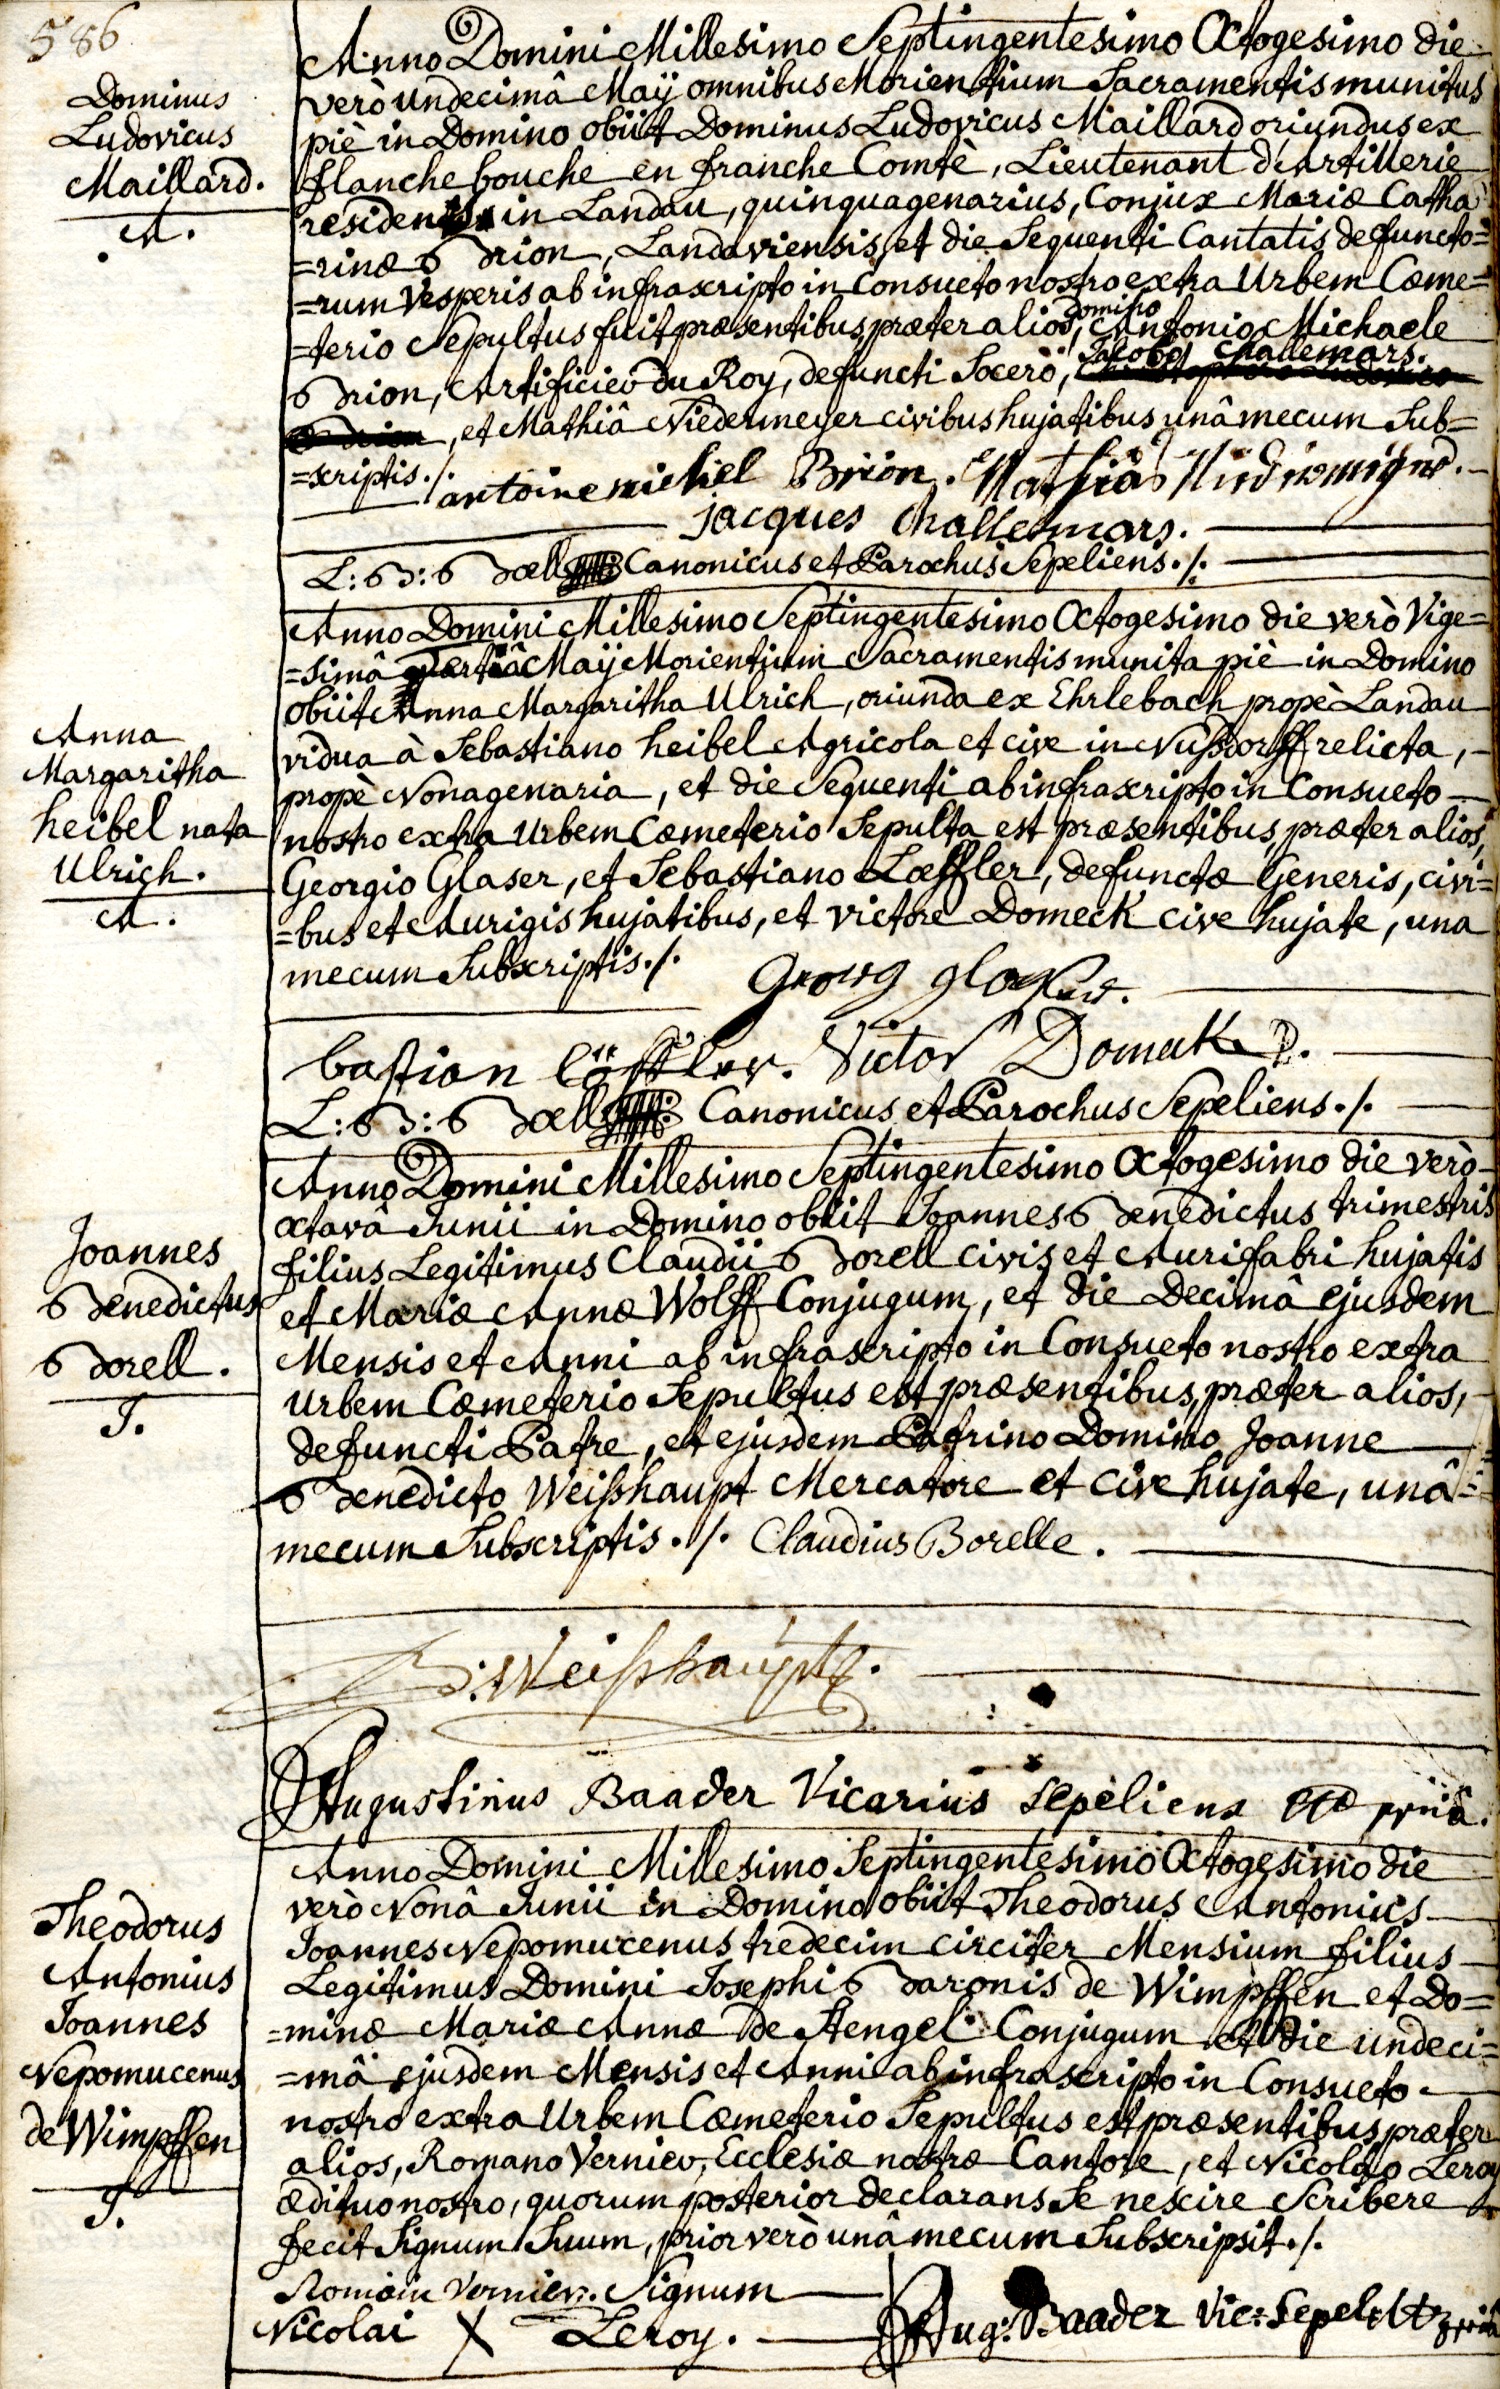 586
Dominus
Ludovicus
Maillard.
A.
Anno Domini Millesimo Septingentesimo Octogesimo die
verò undecimâ Maÿ omnibus Morientium Sacramentis munitus
piè in Domino obiit Dominus Ludovicus Maillard oriundus ex
flanchebouche en franche Comtè, Lieutenant d'Artillerie
residens in Landau, quinquagenarius, Conjux Mariæ Catha
=rinæ Brion, Landaviensis, et die Sequenti Cantatis defuncto=
=rum Vesperis ab infrascripto in Consueto nostro extra Urbem Cœme=
=terio Sepultus fuit præsentibus, præter alios, Domino Antonio Michaele
Brion, Artificier du Roy, defuncti Socero, Jacobo Challemars.
, et Mathiâ Niedermeyer civibus hujatibus unâ mecum Sub=
=scriptis ./.
antoine michel Brion. Mathias
jacques challemars.
L: B: Bœll Canonicus et Parochus Sepeliens ./.
Anna
Margaritha
heibel nata
Ulrich.
A.
Anno Domini Millesimo Septingentesimo Octogesimo die verò Vige=
=simâ tertiâ Maÿ Morientium Sacramentis munita piè in Domino
obiit Anna Margaritha Ulrich, oriunda ex Ehrlebach propè Landau
vidua à Sebastiano heibel Agricola et cive in Nußdorff relicta,
propè Nonagenaria, et die Sequenti ab infrascripto in Consueto
nostro extra Urbem Cœmeterio Sepulta est præsentibus, præter alios,
Georgio Glaser, et Sebastiano Lœffler, defunctæ Generis, civi=
=bus et Aurigis hujatibus, et victore Domeck cive hujate, una
mecum Subscriptis ./.
Georg glaser.
bastian löffler. Victor Domeck
L: B: Bœll Canonicus et Parochus Sepeliens ./.
Joannes
Benedictus
Borell.
J.
Anno Domini Millesimo Septingentesimo Octogesimo die verò
octavâ Junii in Domino obiit Joannes Benedictus trimestris
filius Legitimus Claudii Borell civis et Aurifabri hujatis
et Mariæ Annæ Wolff Conjugum, et die Decimâ ejusdem
Mensis et Anni ab infrascripto in Consueto nostro extra
Urbem Cœmeterio Sepultus est præsentibus, præter alios,
defuncti Patre, et ejusdem Patrino Domino Joanne
Benedicto Weißhaupt Mercatore et cive hujate, unâ
mecum Subscriptis ./. Claudius Borelle.
B: Weißhaupt.
Augustinus Baader Vicarius sepeliens
Theodorus
Antonius
Joannes
Nepomucenus
de Wimpffen
J.
Anno Domini Millesimo Septingentesimo Octogesimo die
verò Nonâ Junii in Domino obiit Theodorus Antonius
Joannes Nepomucenus tredecim circiter Mensium filius
Legitimus Domini Josephi Baronis de Wimpffen et Do=
=minæ Mariæ Annæ de Stengel Conjugum et die undeci=
=mâ ejusdem Mensis et Anni ab infrascripto in Consueto
nostro extra Urbem Cœmeterio Sepultus est præsentibus, præter
alios, Romano Vernier, Ecclesiæ nostræ Cantore, et Nicolao Leroy
ædituo nostro, quorum posterior declarans Se nescire Scribere
fecit Signum Suum, prior verò unâ mecum Subscripsit ./.
Romain Vernier. Signum
Nicolai X Leroy.
Aug: Baader Vic: Sepel: